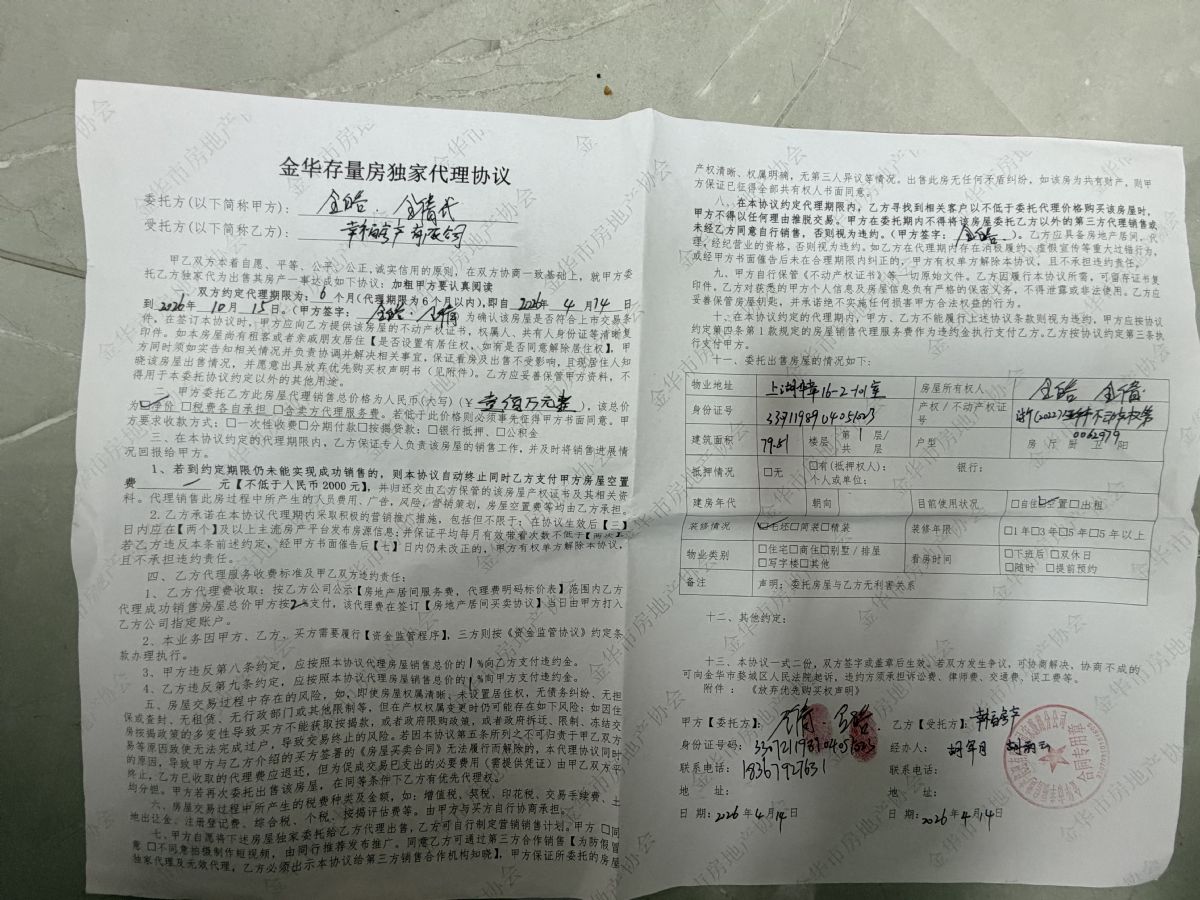 金华存量房独家代理协议
委托方(以下简称甲方):
受托方(以下简称乙方):
甲乙双方本着自愿、平等、公平、公正,诚实信用的原则,在双方协商一致基础上,就甲方委
托乙方独家代为出售其房产一事达成如下协议:加粗甲方要认真阅读
双方约定代理期限为: 6 个月(代理期限为6个月以内),即自 2026年 4 月 14 日
到 2026年 10 月 15日。(甲方签字: 为确认该房屋是否符合上市交易条
件。在签订本协议时,甲方应向乙方提供该房屋的不动产权证书,权属人、共有人身份证等清晰复
印件。如本房屋尚有租客或者亲戚朋友居住【是否设置有居住权,如有是否同意解除居住权】,甲
方同时须如实告知相关情况并负责协调并解决相关事宜,保证看房及出售不受影响,且现居住人知
晓该房屋出售情况,并愿意出具放弃优先购买权声明书(见附件)。乙方应妥善保管甲方资料,不
得用于本委托协议约定以外的其他用途。
二、甲方委托乙方此房屋代理销售总价格为人民币(大写)(¥ 壹佰万元整 ),该总价
为☑净价 □税费各自承担 □含卖方代理服务费。若低于此价格则必须事先征得甲方书面同意。甲
方要求收款方式:□一次性收费□分期付款□按揭贷款:□银行抵押、□公积金
三、在本协议约定的代理期限内,乙方保证专人负责该房屋的销售工作,并及时将销售进展情
况回报给甲方。
1、若到约定期限仍未能实现成功销售的,则本协议自动终止同时乙方支付甲方房屋空置
费 / 元【不低于人民币2000元】,并归还交由乙方保管的该房屋产权证书及其相关资
料。代理销售此房过程中所产生的人员费用、广告,风险,营销策划,房屋空置费等均由乙方承担。
2.乙方承诺在本协议代理期内采取积极的营销推广措施,包括但不限于:在协议生效后【三】
日内应在【两个】及以上主流房产平台发布房源信息;并保证平均每月有效带看次数不低于【两次】。
若乙方违反本条前述约定,经甲方书面催告后【七】日内仍未改正的,甲方有权单方解除本协议,
且不承担违约责任。
四、乙方代理服务收费标准及甲乙双方违约责任:
1、乙方代理费收取:按乙方公司公示【房地产居间服务费,代理费明码标价表】范围内乙方
代理成功销售房屋总价甲方按2%支付,该代理费在签订【房地产居间买卖协议】当日由甲方打入
乙方公司指定账户。
2、本业务因甲方、乙方、买方需要履行【资金监管程序】,三方则按《资金监管协议》约定条
款办理执行。
3、甲方违反第八条约定,应按照本协议代理房屋销售总价的1%向乙方支付违约金。
4、乙方违反第九条约定,应按照本协议代理房屋销售总价的1%向甲方支付违约金。
五、房屋交易过程中存在的风险,如,即使房屋权属清晰、未设置居住权,无债务纠纷、无担
保或查封、无租赁、无行政部门或其他限制等,但在产权权属变更时仍可能存在如下风险:如因住
房按揭政策的多变性导致买方不能获取按揭款,或者政府限购政策,或者政府拆迁、限制、冻结交
易等原因致使无法完成过户,导致交易终止的风险。若因本协议第五条所列之不可归责于甲乙双方
的原因,导致甲方与乙方介绍的买方签署的《房屋买卖合同》无法履行而解除的,本代理协议同时
终止,乙方已收取的代理费应退还,但为促成交易已支出的必要费用(需提供凭证)由甲乙双方平
均分担。甲方若再次委托出售该房屋,在同等条件下乙方有优先代理权。
六、房屋交易过程中所产生的税费种类及金额,如:增值税、契税、印花税、交易手续费、土
地出让金、注册登记费、综合税、个税、按揭评估费等。由甲方与买方自行协商承担。
七、甲方自愿将下述房屋独家委托给乙方代理出售,乙方可自行制定营销销售计划。甲方 □同
意 □不同意拍摄制作短视频,由同行推荐发布推广。同意乙方可通过第三方合作销售【为防假冒
独家代理及无效代理,乙方必须出示本协议给第三方销售合作机构知晓】,甲方保证所委托的房屋
产权清晰、权属明确,无第三人异议等情况。出售此房无任何矛盾纠纷,如该房为共有财产,则甲
方保证已征得全部共有权人书面同意。
八、在本协议约定代理期限内,乙方寻找到相关客户以不低于委托代理价格购买该房屋时,
甲方不得以任何理由推脱交易。甲方在委托期内不得将该房屋委托乙方以外的第三方代理销售或
未经乙方同意自行销售,否则视为违约。(甲方签字: )。乙方应具备房地产居间,代
理,经纪营业的资格,否则视为违约。如乙方在代理期内存在消极履约、虚假宣传等重大过错行为,
或经甲方书面催告后未在合理期限内纠正的,甲方有权单方解除本协议,且不承担违约责任。
九、甲方自行保管《不动产权证书》等一切原始文件。乙方因履行本协议所需,可留存证书复
印件,乙方对获悉的甲方个人信息及房屋信息负有严格的保密义务,不得泄露或非法使用。乙方应
妥善保管房屋钥匙,并承诺绝不实施任何损害甲方合法权益的行为。
十、在本协议约定的代理期内,甲方、乙方不能履行上述协议条款则视为违约,甲方应按协议
约定第四条第1款规定的房屋销售代理服务费作为违约金执行支付乙方。乙方按协议约定第三条执
行支付甲方。
十一、委托出售房屋的情况如下:
物业地址 16-2-701室 房屋所有权人
身份证号 产权/不动产权证号 0062979
建筑面积 79.51 楼层 第 1 层/共 层 户型 房 厅 厨 卫 阳
抵押情况 □无 □有(抵押权人): 银行: 个人或单位:
建房年代 朝向 目前使用状况 □自住☑空置□出租
装修情况 ☑毛坯□简装□精装 装修年限 □1年□3年□5年□5年以上
物业类别 □住宅□商住□别墅/排屋 □写字楼□其他 看房时间 □下班后 □双休日 □随时 □提前预约
备注 声明:委托房屋与乙方无利害关系
十二、其他约定:
十三、本协议一式二份,双方签字或盖章后生效。若双方发生争议,可协商解决,协商不成的
可向金华市婺城区人民法院起诉,违约方须承担诉讼费、律师费、交通费、误工费等。
附件:《放弃优先购买权声明》
甲方【委托方】: 乙方【受托方】:
身份证号码: 经办人:
联系电话: 18367927631 联系电话:
地 址: 地 址:
日期:2026年4月14日 日期:2026年4月14日
合同专用章
金华市房地产协会